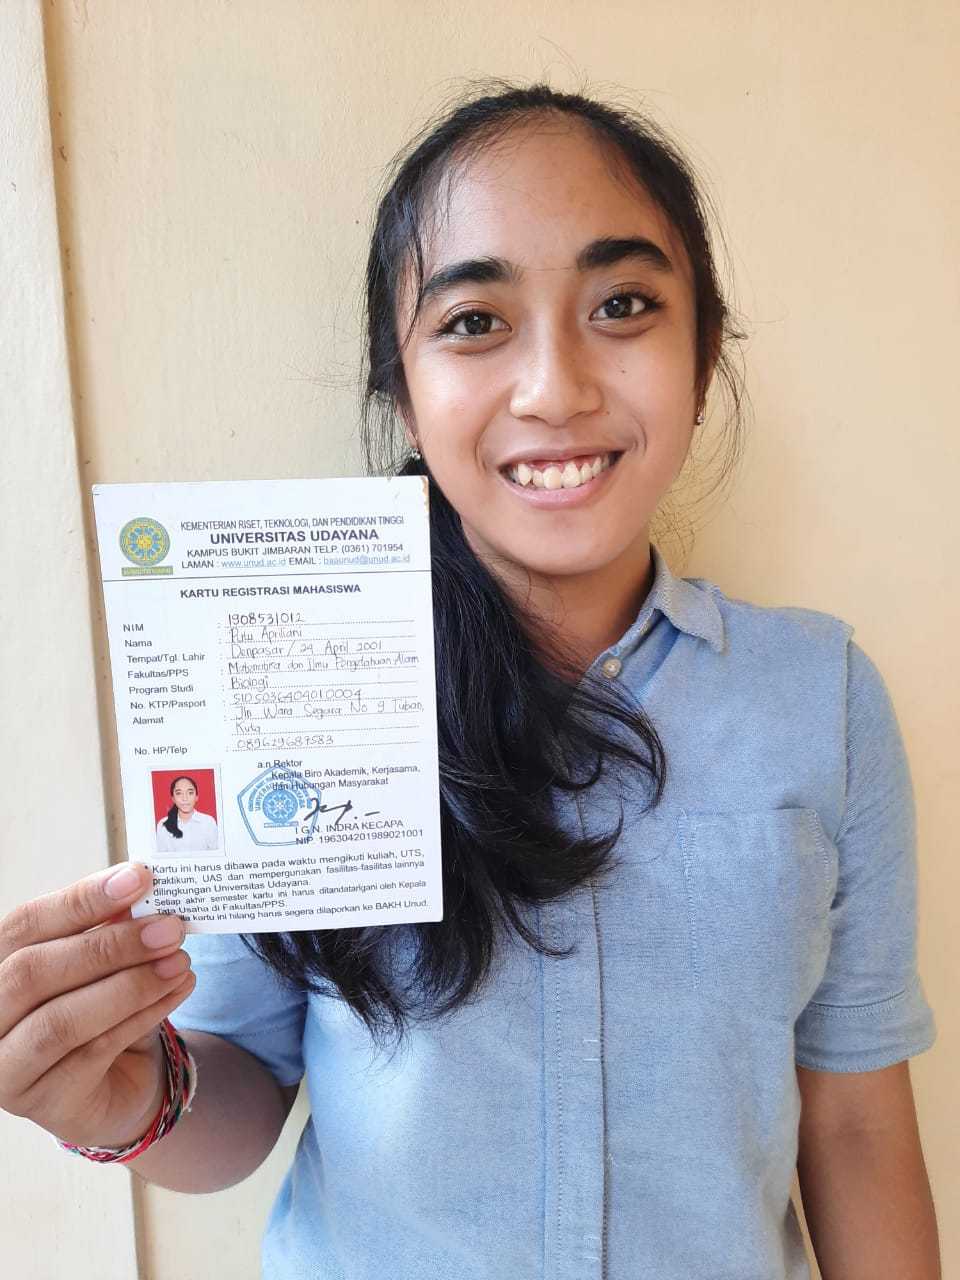 KEMENTERIAN RISET, TEKNOLOGI, DAN PENDIDIKAN TINGGI
UNIVERSITAS UDAYANA
KAMPUS BUKIT JIMBARAN TELP. (0361) 701954
LAMAN : www.unud.ac.id EMAIL : baaunud@unud.ac.id
KARTU REGISTRASI MAHASISWA
NIM : 1908531012
Nama : Putu Apriliani
Tempat/Tgl. Lahir : Denpasar / 24 April 2001
Fakultas/PPS : Matematika dan Ilmu Pengetahuan Alam
Program Studi : Biologi
No. KTP/Pasport : 5105036404010004
Alamat : Jln Wara Segara No 9 Tuban,
Kuta
No. HP/Telp : 089629687583
a.n Rektor
Kepala Biro Akademik, Kerjasama,
dan Hubungan Masyarakat
UNIVERSITAS UDAYANA
I G.N. INDRA KECAPA
NIP. 196304201989021001
• Kartu ini harus dibawa pada waktu mengikuti kuliah, UTS,
praktikum, UAS dan mempergunakan fasilitas-fasilitas lainnya
dilingkungan Universitas Udayana.
• Setiap akhir semester kartu ini harus ditandatangani oleh Kepala
Tata Usaha di Fakultas/PPS.
kartu ini hilang harus segera dilaporkan ke BAKH Unud.